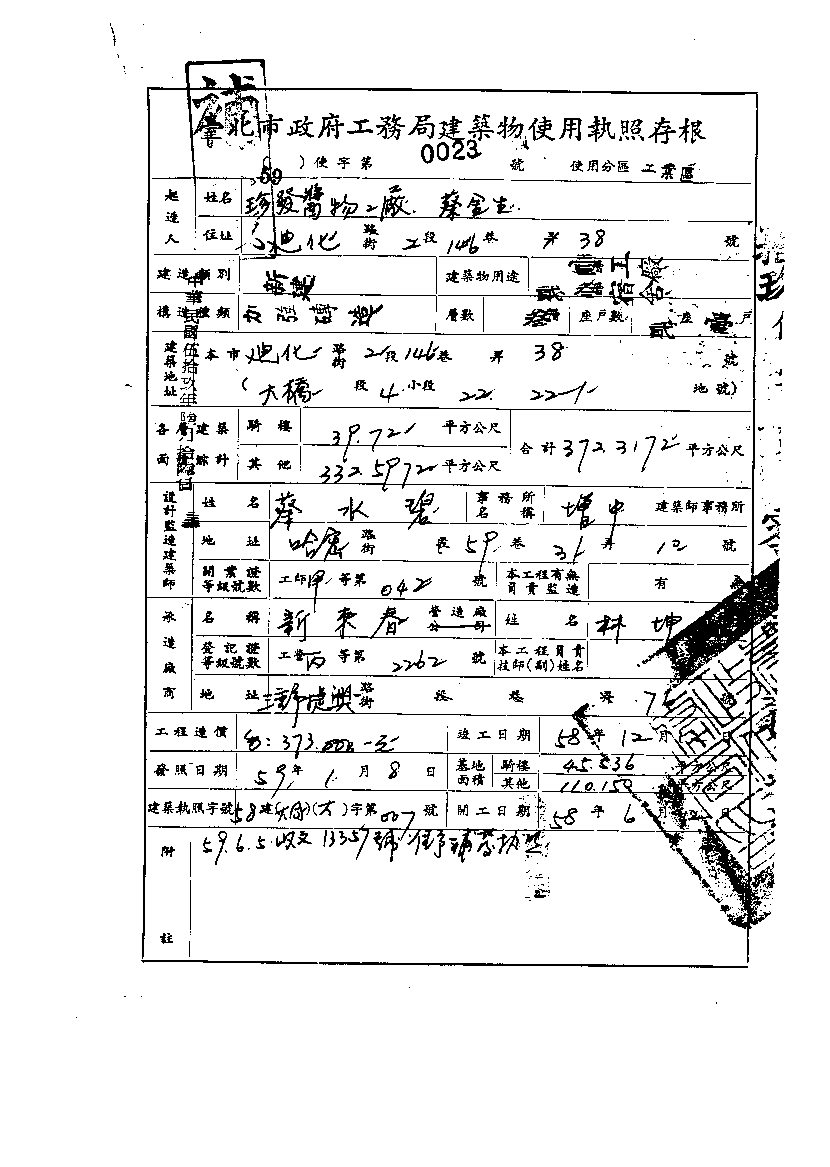 補
臺北市政府工務局建築物使用執照存根
(59)使字第 0023 號 使用分區 工業區
起造人 姓名 珍發醬物工廠 蔡金生
住址 迪化 路街 2段 146巷 弄 38 號
建造類別 新建 建築物用途 壹 工廠 貳 宿舍
構造種類 加強磚造 層數 座戶數 貳座壹戶
建築地址 本市 迪化 路街 2段 146巷 弄 38 號
(大橋 段 4 小段 22. 22-1 地號)
各層建築面積總計 騎樓 39.721 平方公尺 合計 372.3172 平方公尺
其他 332.5972 平方公尺
設計監造建築師 姓名 蔡水碧 事務所名稱 增中 建築師事務所
地址 哈密 路街 段 59 巷 31 弄 12 號
開業證等級號數 工師甲等第 042 號 本工程有無負責監造 有
承造廠商 名稱 新東春 營造廠公司 姓名 林坤
登記證等級號數 工營丙等第 2262 號 本工程負責技師(副)姓名
地址 路街 段 巷 弄 號
工程造價 373.000 元 竣工日期 58年12月 日
發照日期 59年1月8日 基地面積 騎樓 45.536 平方公尺
其他 110.150 平方公尺
建築執照字號 58建( )( )字第007號 開工日期 58年6月 日
附註 59.6.5收文13357號准予補發執照
中華民國伍拾玖年陸月拾 日